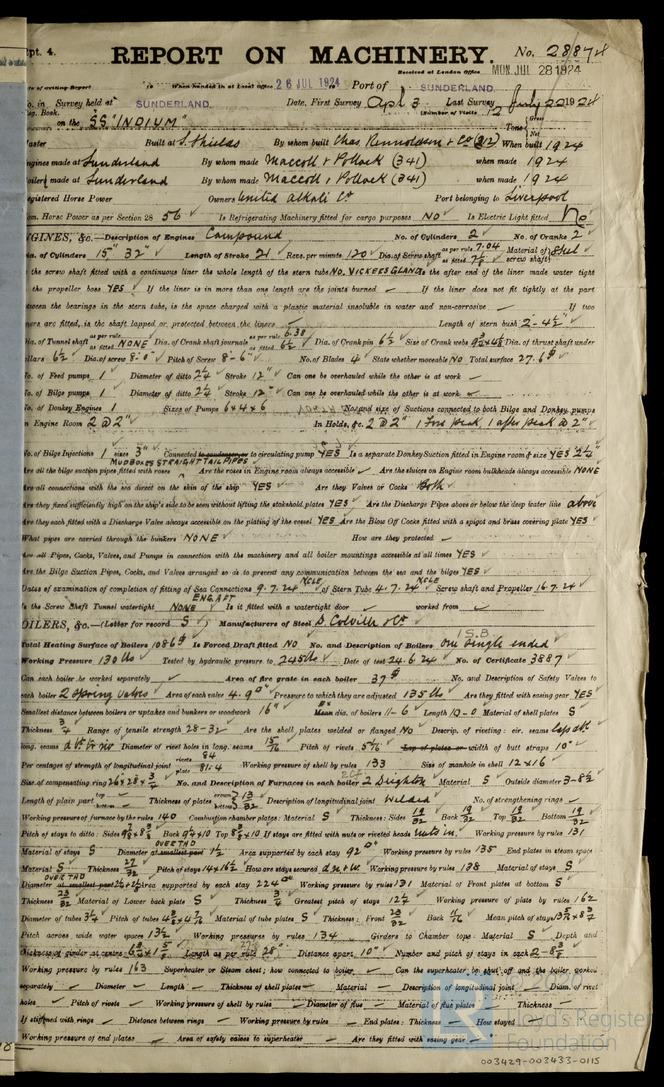 Rpt. 4.
REPORT ON MACHINERY. No. 28874
Received at London Office MON. JUL 28 1924
Date of writing Report 19 When handed in at Local Office 26 JUL 1924 Port of SUNDERLAND.
No. in Survey held at SUNDERLAND. Date, First Survey Apl 3 Last Survey July 22 1924
Reg. Book. (Number of Visits 12
on the "SS "INDIUM" Tons Gross Net
Master Built at S. Shields By whom built Chas. Rennoldson & Co (212) When built 1924
Engines made at Sunderland By whom made Maccoll & Pollock (341) when made 1924
Boilers made at Sunderland By whom made Maccoll & Pollock (341) when made 1924
Registered Horse Power Owners United Alkali Co Port belonging to Liverpool
Nom. Horse Power as per Section 28 56 Is Refrigerating Machinery fitted for cargo purposes NO Is Electric Light fitted No
ENGINES, &c.—Description of Engines Compound No. of Cylinders 2 No. of Cranks 2
Dia. of Cylinders 15" 32" Length of Stroke 21 Revs. per minute 120 Dia. of Screw shaft as per rule 7.04 as fitted 7⅛ Material of screw shaft Steel
Is the screw shaft fitted with a continuous liner the whole length of the stern tube NO. VICKEES GLAND Is the after end of the liner made water tight
in the propeller boss YES If the liner is in more than one length are the joints burned — If the liner does not fit tightly at the part
between the bearings in the stern tube, is the space charged with a plastic material insoluble in water and non-corrosive — If two
liners are fitted, is the shaft lapped or protected between the liners — Length of stern bush 2'-4½"
Dia. of Tunnel shaft as per rule as fitted NONE Dia. of Crank shaft journals as per rule 6.38 as fitted 6½ Dia. of Crank pin 6½ Size of Crank webs Dia. of thrust shaft under
collars 6½ Dia. of screw 8'-0" Pitch of Screw 8-6" No. of Blades 4 State whether moveable NO Total surface 27.6
No. of Feed pumps 1 Diameter of ditto 2¼ Stroke 12" Can one be overhauled while the other is at work —
No. of Bilge pumps 1 Diameter of ditto 2¼ Stroke 12" Can one be overhauled while the other is at work —
No. of Donkey Engines 1 Sizes of Pumps 6x4x6 No. and size of Suctions connected to both Bilge and Donkey pumps
In Engine Room 2 @ 2" In Holds, &c. 2 @ 2" 1 Fore peak 1 after peak @ 2"
No. of Bilge Injections 1 sizes 3" Connected to condenser, or to circulating pump YES Is a separate Donkey Suction fitted in Engine room & size YES 2¼"
MUDBOXES STRAIGHT TAIL PIPES
Are all the bilge suction pipes fitted with roses Are the roses in Engine room always accessible Are the sluices on Engine room bulkheads always accessible NONE
Are all connections with the sea direct on the skin of the ship YES Are they Valves or Cocks Both
Are they fixed sufficiently high on the ship's side to be seen without lifting the stokehold plates YES Are the Discharge Pipes above or below the deep water line above
Are they each fitted with a Discharge Valve always accessible on the plating of the vessel YES Are the Blow Off Cocks fitted with a spigot and brass covering plate YES
What pipes are carried through the bunkers NONE How are they protected —
Are all Pipes, Cocks, Valves, and Pumps in connection with the machinery and all boiler mountings accessible at all times YES
Are the Bilge Suction Pipes, Cocks, and Valves arranged so as to prevent any communication between the sea and the bilges YES
Dates of examination of completion of fitting of Sea Connections 9.7.24 NCLE of Stern Tube 4.7.24 NCLE Screw shaft and Propeller 16.7.24
ENG. AFT
Is the Screw Shaft Tunnel watertight NONE Is it fitted with a watertight door — worked from —
BOILERS, &c.—(Letter for record S) Manufacturers of Steel D. Colville & Co
1 S.B
Total Heating Surface of Boilers 1086 Is Forced Draft fitted NO No. and Description of Boilers one single ended
Working Pressure 130 lbs Tested by hydraulic pressure to 245 lbs Date of test 24.6.24 No. of Certificate 3887
Can each boiler be worked separately — Area of fire grate in each boiler 37 No. and Description of Safety Valves to
each boiler 2 Spring valves Area of each valve 4.9 Pressure to which they are adjusted 135 lbs Are they fitted with easing gear YES
Smallest distance between boilers or uptakes and bunkers or woodwork 16" Mean dia. of boilers 11-6 Length 10-0 Material of shell plates S
Thickness ¾ Range of tensile strength 28-32 Are the shell plates welded or flanged NO Descrip. of riveting: cir. seams
long. seams Diameter of rivet holes in long. seams 15/16 Pitch of rivets Lap of plates or width of butt straps 10"
Per centages of strength of longitudinal joint rivets 84 plate 81.4 Working pressure of shell by rules 133 Size of manhole in shell 12x16
Size of compensating ring 26x28x¾ No. and Description of Furnaces in each boiler 2 Deighton Material S Outside diameter 3-8½
Length of plain part top bottom Thickness of plates crown bottom 13/32 Description of longitudinal joint Welded No. of strengthening rings —
Working pressure of furnace by the rules 140 Combustion chamber plates: Material S Thickness: Sides 19/32 Back 19/32 Top 19/32 Bottom 19/32
Pitch of stays to ditto: Sides Back Top If stays are fitted with nuts or riveted heads nuts in. Working pressure by rules 131
OVER THD
Material of stays S Diameter at smallest part 1½ Area supported by each stay 92 Working pressure by rules 135 End plates in steam space
Material S Thickness 27/32 Pitch of stays 14x16½ How are stays secured Working pressure by rules 138 Material of stays S
OVER THD
Diameter at smallest part Area supported by each stay 224 Working pressure by rules 131 Material of Front plates at bottom S
Thickness 23/32 Material of Lower back plate S Thickness ¾ Greatest pitch of stays 12½ Working pressure of plate by rules 162
Diameter of tubes 3¼ Pitch of tubes Material of tube plates S Thickness: Front 23/32 Back 11/16 Mean pitch of stays
Pitch across wide water spaces 13½ Working pressures by rules 134 Girders to Chamber tops: Material S Depth and
thickness of girder at centre Length as per rule 28" Distance apart 10" Number and pitch of stays in each 2-8⅜
Working pressure by rules 163 Superheater or Steam chest; how connected to boiler — Can the superheater be shut off and the boiler worked
separately — Diameter — Length — Thickness of shell plates — Material — Description of longitudinal joint — Diam. of rivet
holes — Pitch of rivets — Working pressure of shell by rules — Diameter of flue — Material of flue plates — Thickness —
If stiffened with rings — Distance between rings — Working pressure by rules — End plates: Thickness — How stayed
Working pressure of end plates — Area of safety valves to superheater — Are they fitted with easing gear —
Lloyd's Register
Foundation
003429-003433-0115